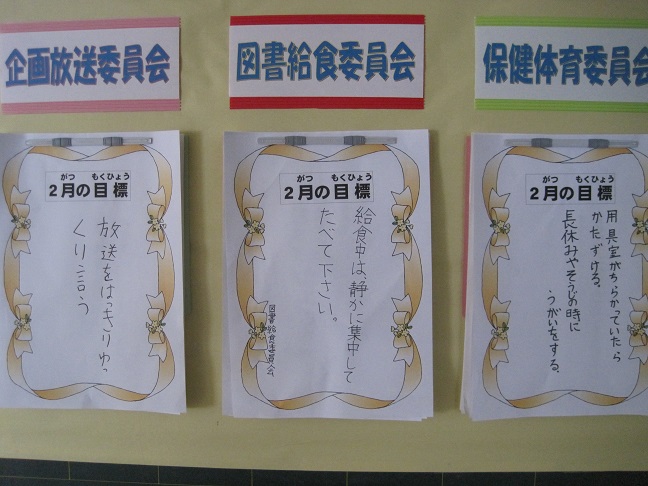 企画放送委員会
がつ もくひょう
2月の目標
放送をはっきりゆっ
くり言う
図書給食委員会
がつ もくひょう
2月の目標
給食中は、静かに集中して
たべて下さい。
図書給食委員会
保健体育委員会
がつ もくひょう
2月の目標
用具室がちらかっていたら
かたずける。
長休みやそうじの時に
うがいをする。